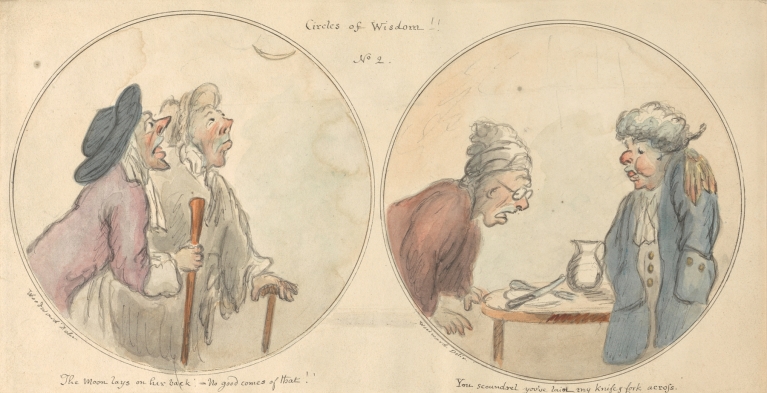 Circles of Wisdom!!
No 2.
Woodward Delin
Woodward Delin
The Moon lays on her back - No good comes of that!!
You scoundrel you've laid my knife & fork across.